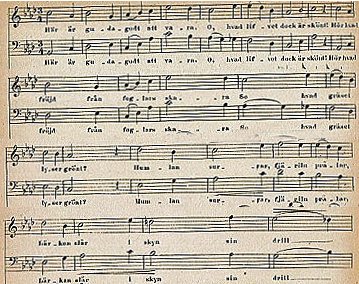 Här är gu - da - godt att va - ra. O, hvad lif - vet dock är skönt! Hör hvad
Här är gu - da - godt att va - ra. O, hvad lif - vet dock är skönt! Hör hvad
fröjd från fog - lars ska - ra Se hvad gräset
fröjd från fog - lars ska - ra Se hvad gräset
ly - ser grönt? Hum - lan sur - rar, fjä - riln prå - lar,
ly - ser grönt? Hum - lan sur - rar, fjä - riln prå - lar,
lär - kan slår i skyn sin drill
lär - kan slår i skyn sin drill